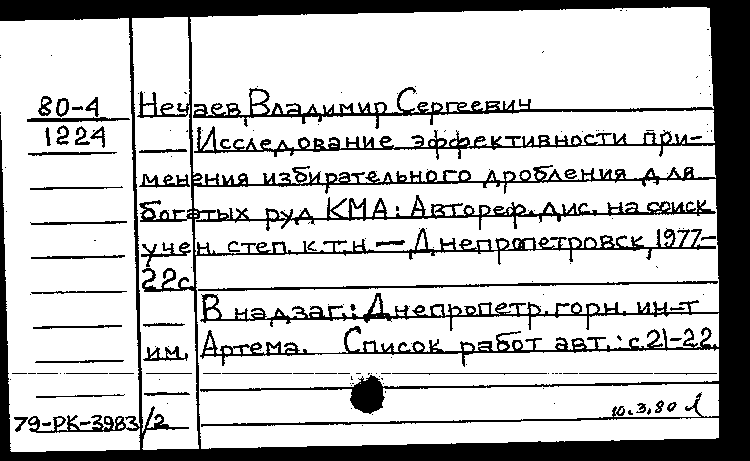 80-4 Нечаев, Владимир Сергеевич
1224 Исследование эффективности при-
менения избирательного дробления для
богатых руд КМА: Автореф. дис. на соиск
учен. степ. к.т.н. — Днепропетровск, 1977-
22с.
В надзаг.: Днепропетр. горн. ин-т
им. Артема. Список работ авт.: с.21-22.
10.3.80
79-РК-3983/2